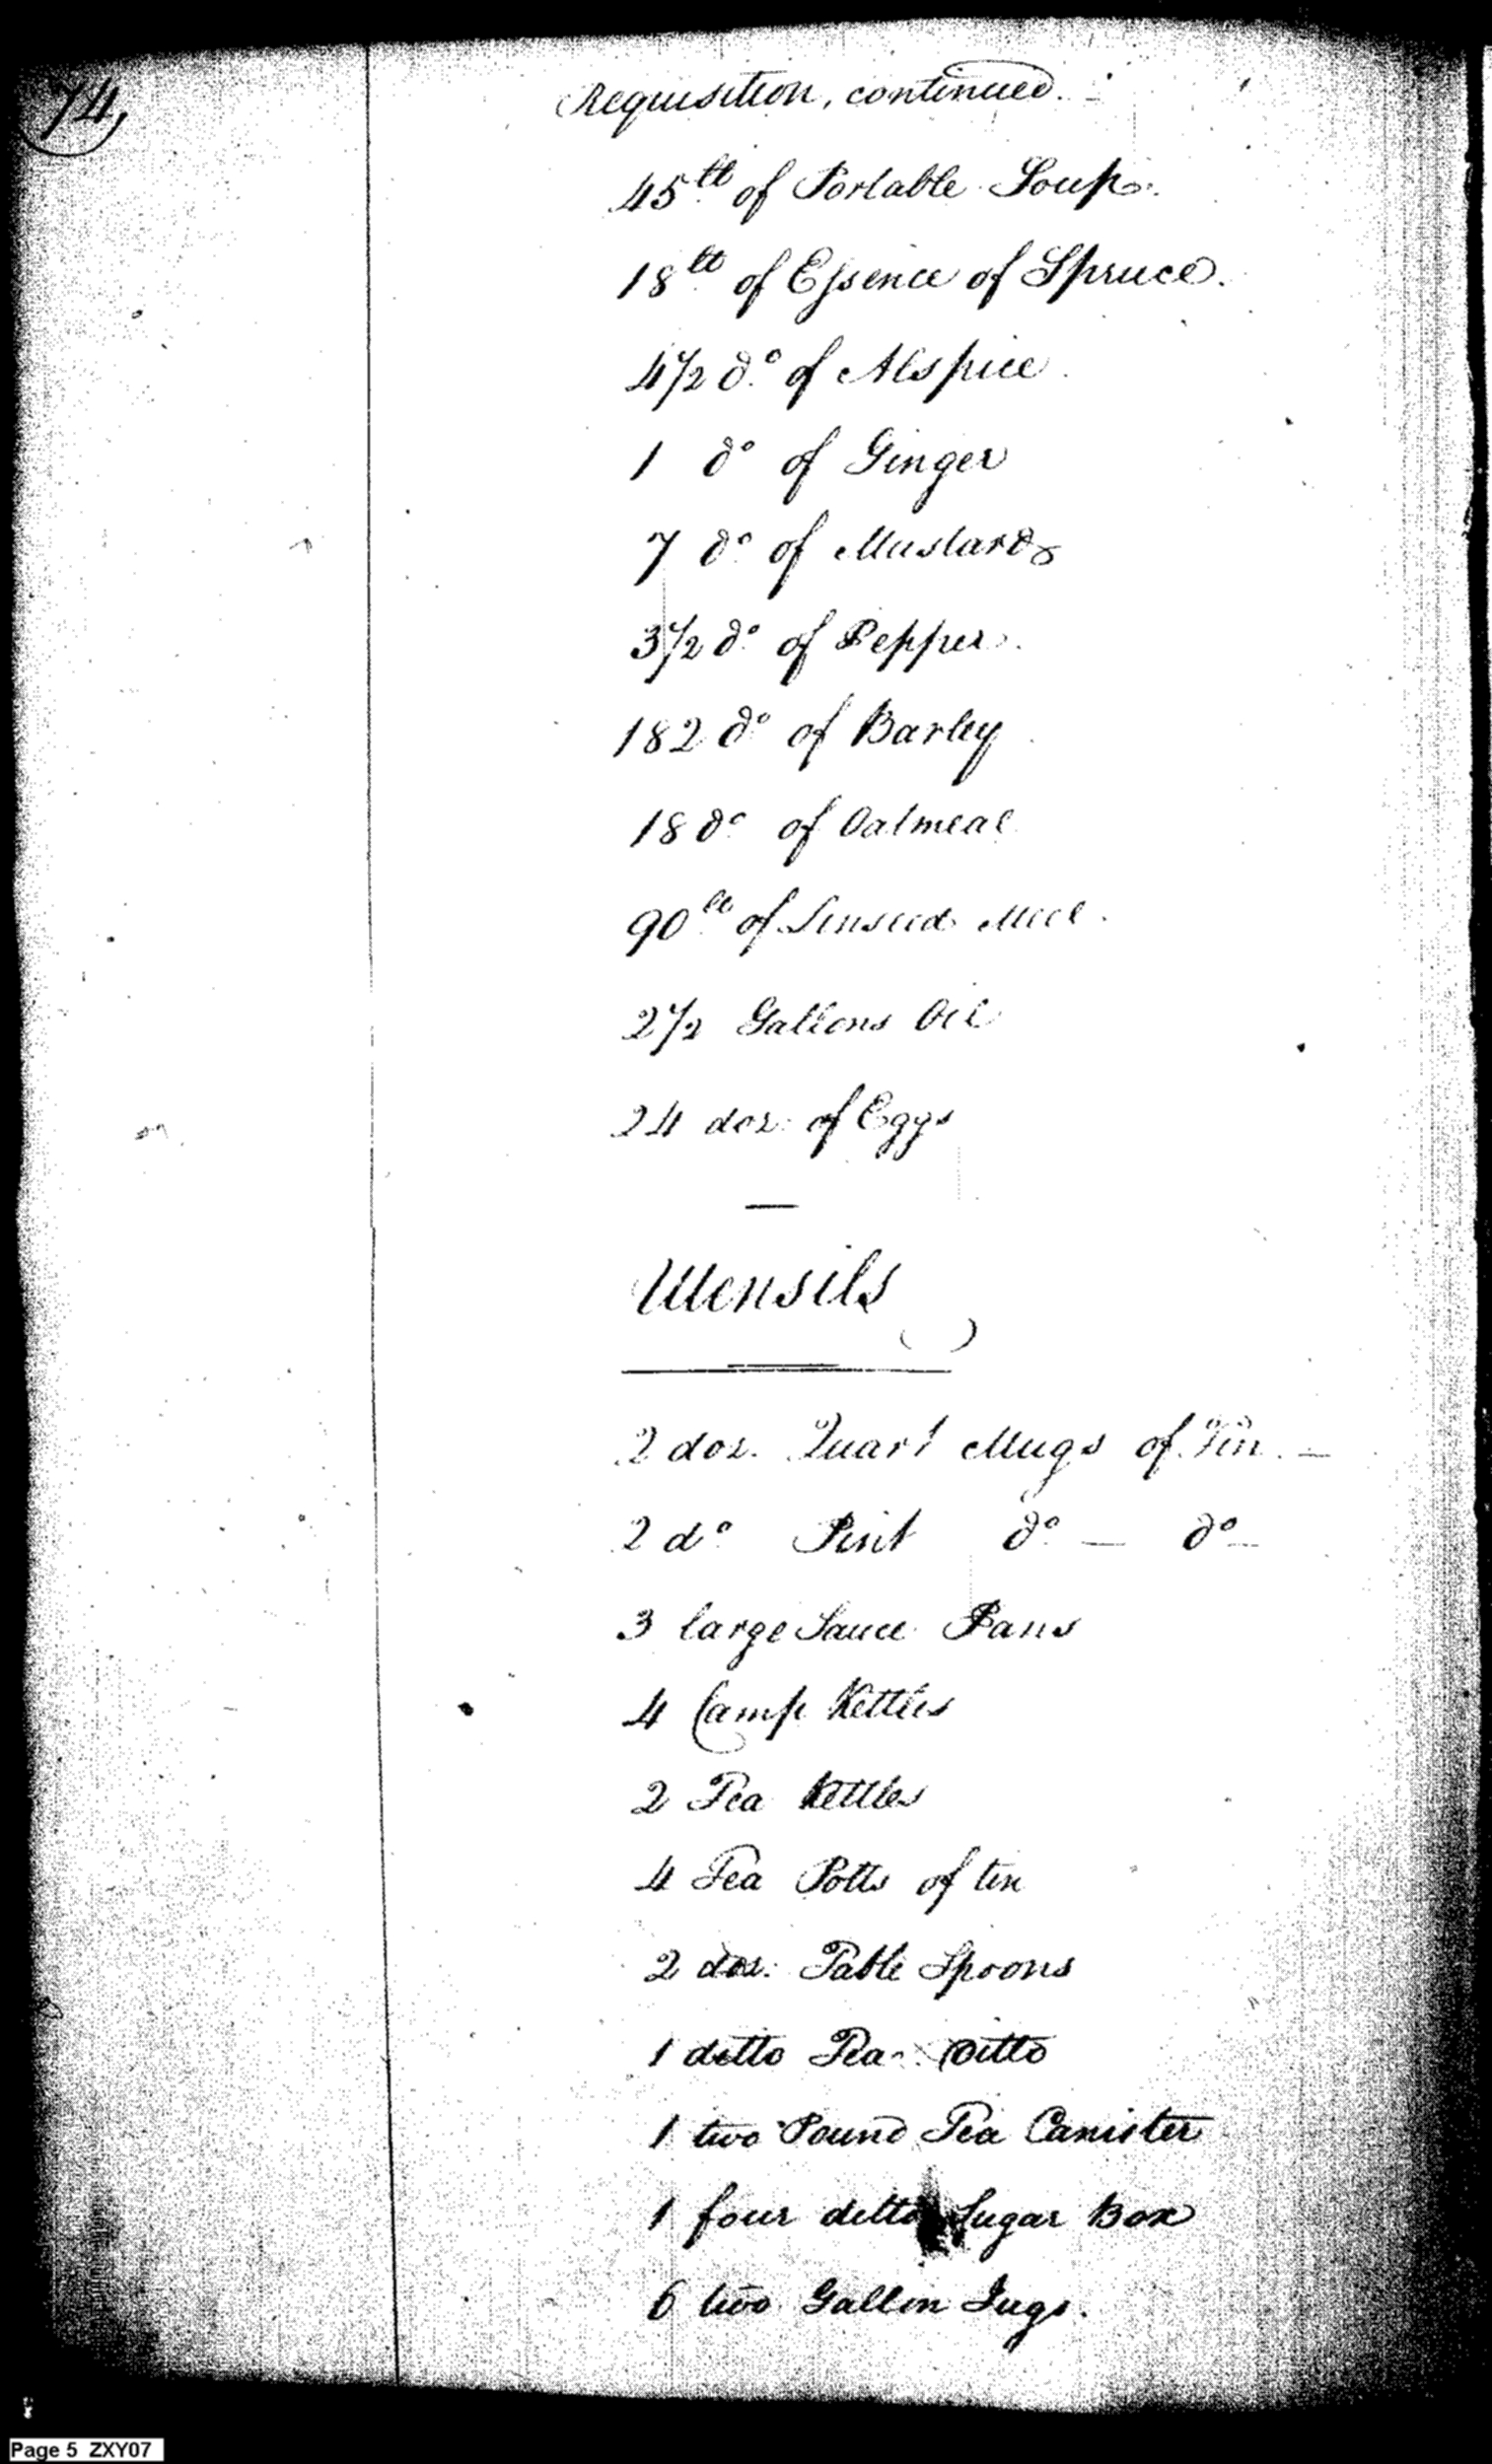 74,
Requisition, continued.
45 lb of Portable Soup.
18 lb of Essence of Spruce.
4 1/2 do. of Alspice
1 do of Ginger
7 do. of Mustard
3 1/2 do. of Pepper.
182 do of Barley
18 do. of Oatmeal
90 lb of Linseed Meel.
2 1/2 Gallons Oil
24 doz. of Eggs
Utensils
2 doz. Quart Mugs of Tin. —
2 do. Pint do. — do —
3 large Sauce Pans
4 Camp Kettles
2 Tea Kettles
4 Tea Potts of tin
2 doz. Table Spoons
1 ditto Tea - Ditto
1 two Pound Tea Canister
1 four ditto Sugar Box
6 two Gallon Jugs.
Page 5 ZXY07